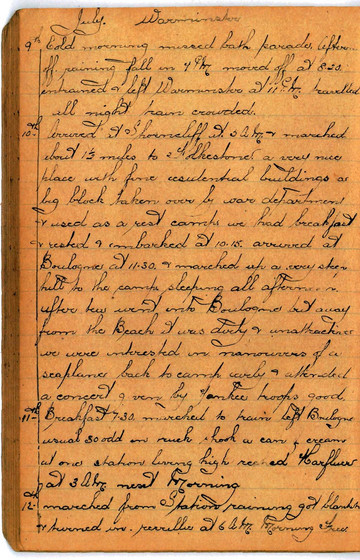 July. Warminster
9th Cold morning missed bath parade, aftern
off raining fall in 7 P.M. moved off at 8.30.
entrained & left Warminster at 11 P.M. travelled
all night train crowded.
10th Arrived at Shorncliff at 5 A.M. & marched
about 1½ miles to Folkestone a very nice
place with fine residential buildings a
big block taken over by war department
& used as a rest camp we had breakfast
& rested & embarked at 10.15. arrived at
Boulogne at 11.30. & marched up a very steep
hill to the camp sleeping all afternoon
after tea went into Boulogne but away
from the Beach it was dirty & unattractive
we were interested in manouvers of a
seaplane back to camp early & attended
a concert given by Yankee troops good
11th Breakfast 7.30. marched to train left Boulogne
usual 30 odd in truck shook a can of cream
at one station living high reached Harfleur
at 3 A.M. next Morning
12th marched from Station raining got blankets
& turned in. reveillee at 6 A.M. Morning free